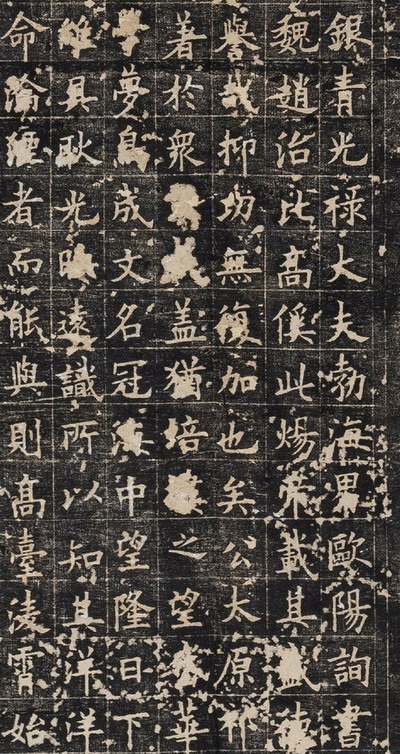 銀青光祿大夫勃海男歐陽詢書
魏趙治比高傒此煬載其德
譽哉抑切無復加也矣公太原祁
著於衆蓋猶培之望華
夢鳥成文名冠海中望隆日下
雖具耿光遠識所以知且洋洋
命論者而能與則高臺凌霄始